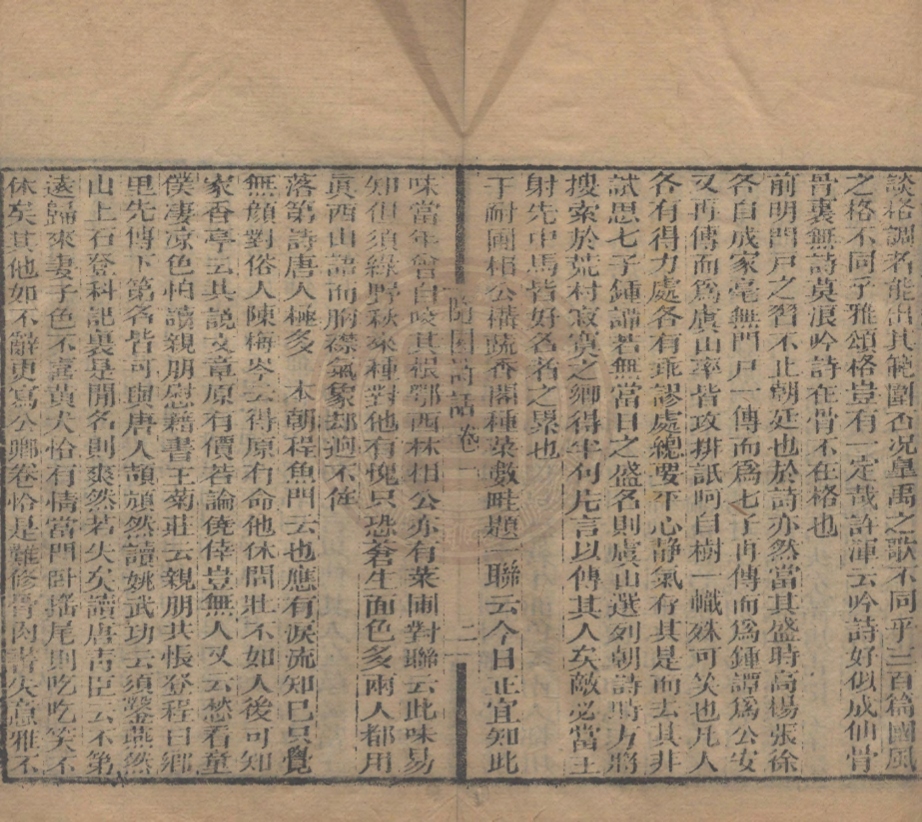 談格調者能出其範圍否况皐禹之歌不同乎三百篇國風
之格不同乎雅頌格豈有一定哉許渾云吟詩好似成仙骨
骨裏無詩莫浪吟詩在骨不在格也
前明門戶之習不止朝廷也於詩亦然當其盛時高楊張徐
各自成家毫無門戶一傳而爲七子再傳而爲鍾譚爲公安
又再傳而爲虞山率皆攻排詆呵自樹一幟殊可笑也凡人
各有得力處各有乖謬處總要平心静氣存其是而去其非
試思七子鍾譚若無當日之盛名則虞山選列朝詩時方將
搜索於荒村寂寞之鄉得半句片言以傳其人矣敵必當王
射先中馬皆好名者之累也
于耐圃相公構蔬香閣種菜數畦題一聯云今日正宜知此
隨園詩話 卷一 二
味當年曾自咬其根鄂西林相公亦有菜圃對聯云此味易
知但須綠野秋來種對他有愧只恐蒼生面色多兩人都用
眞西山語而胸襟氣象却迥不侔
落第詩唐人極多 本朝程魚門云也應有淚流知己只覺
無顔對俗人陳梅岑云得原有命他休問壯不如人後可知
家香亭云共說文章原有價若論僥倖豈無人又云愁看童
僕凄凉色怕讀親朋慰藉書王菊莊云親朋共悵登程日鄉
里先傳下第名皆可與唐人頡頏然讀姚武功云須鑿燕然
山上石登科記裏是開名則爽然若失矣讀唐青臣云不第
遠歸來妻子色不喜黄犬恰有情當門卧摇尾則吃吃笑不
休矣其他如不辭更寫公卿卷恰是難修骨肉書失意雅不